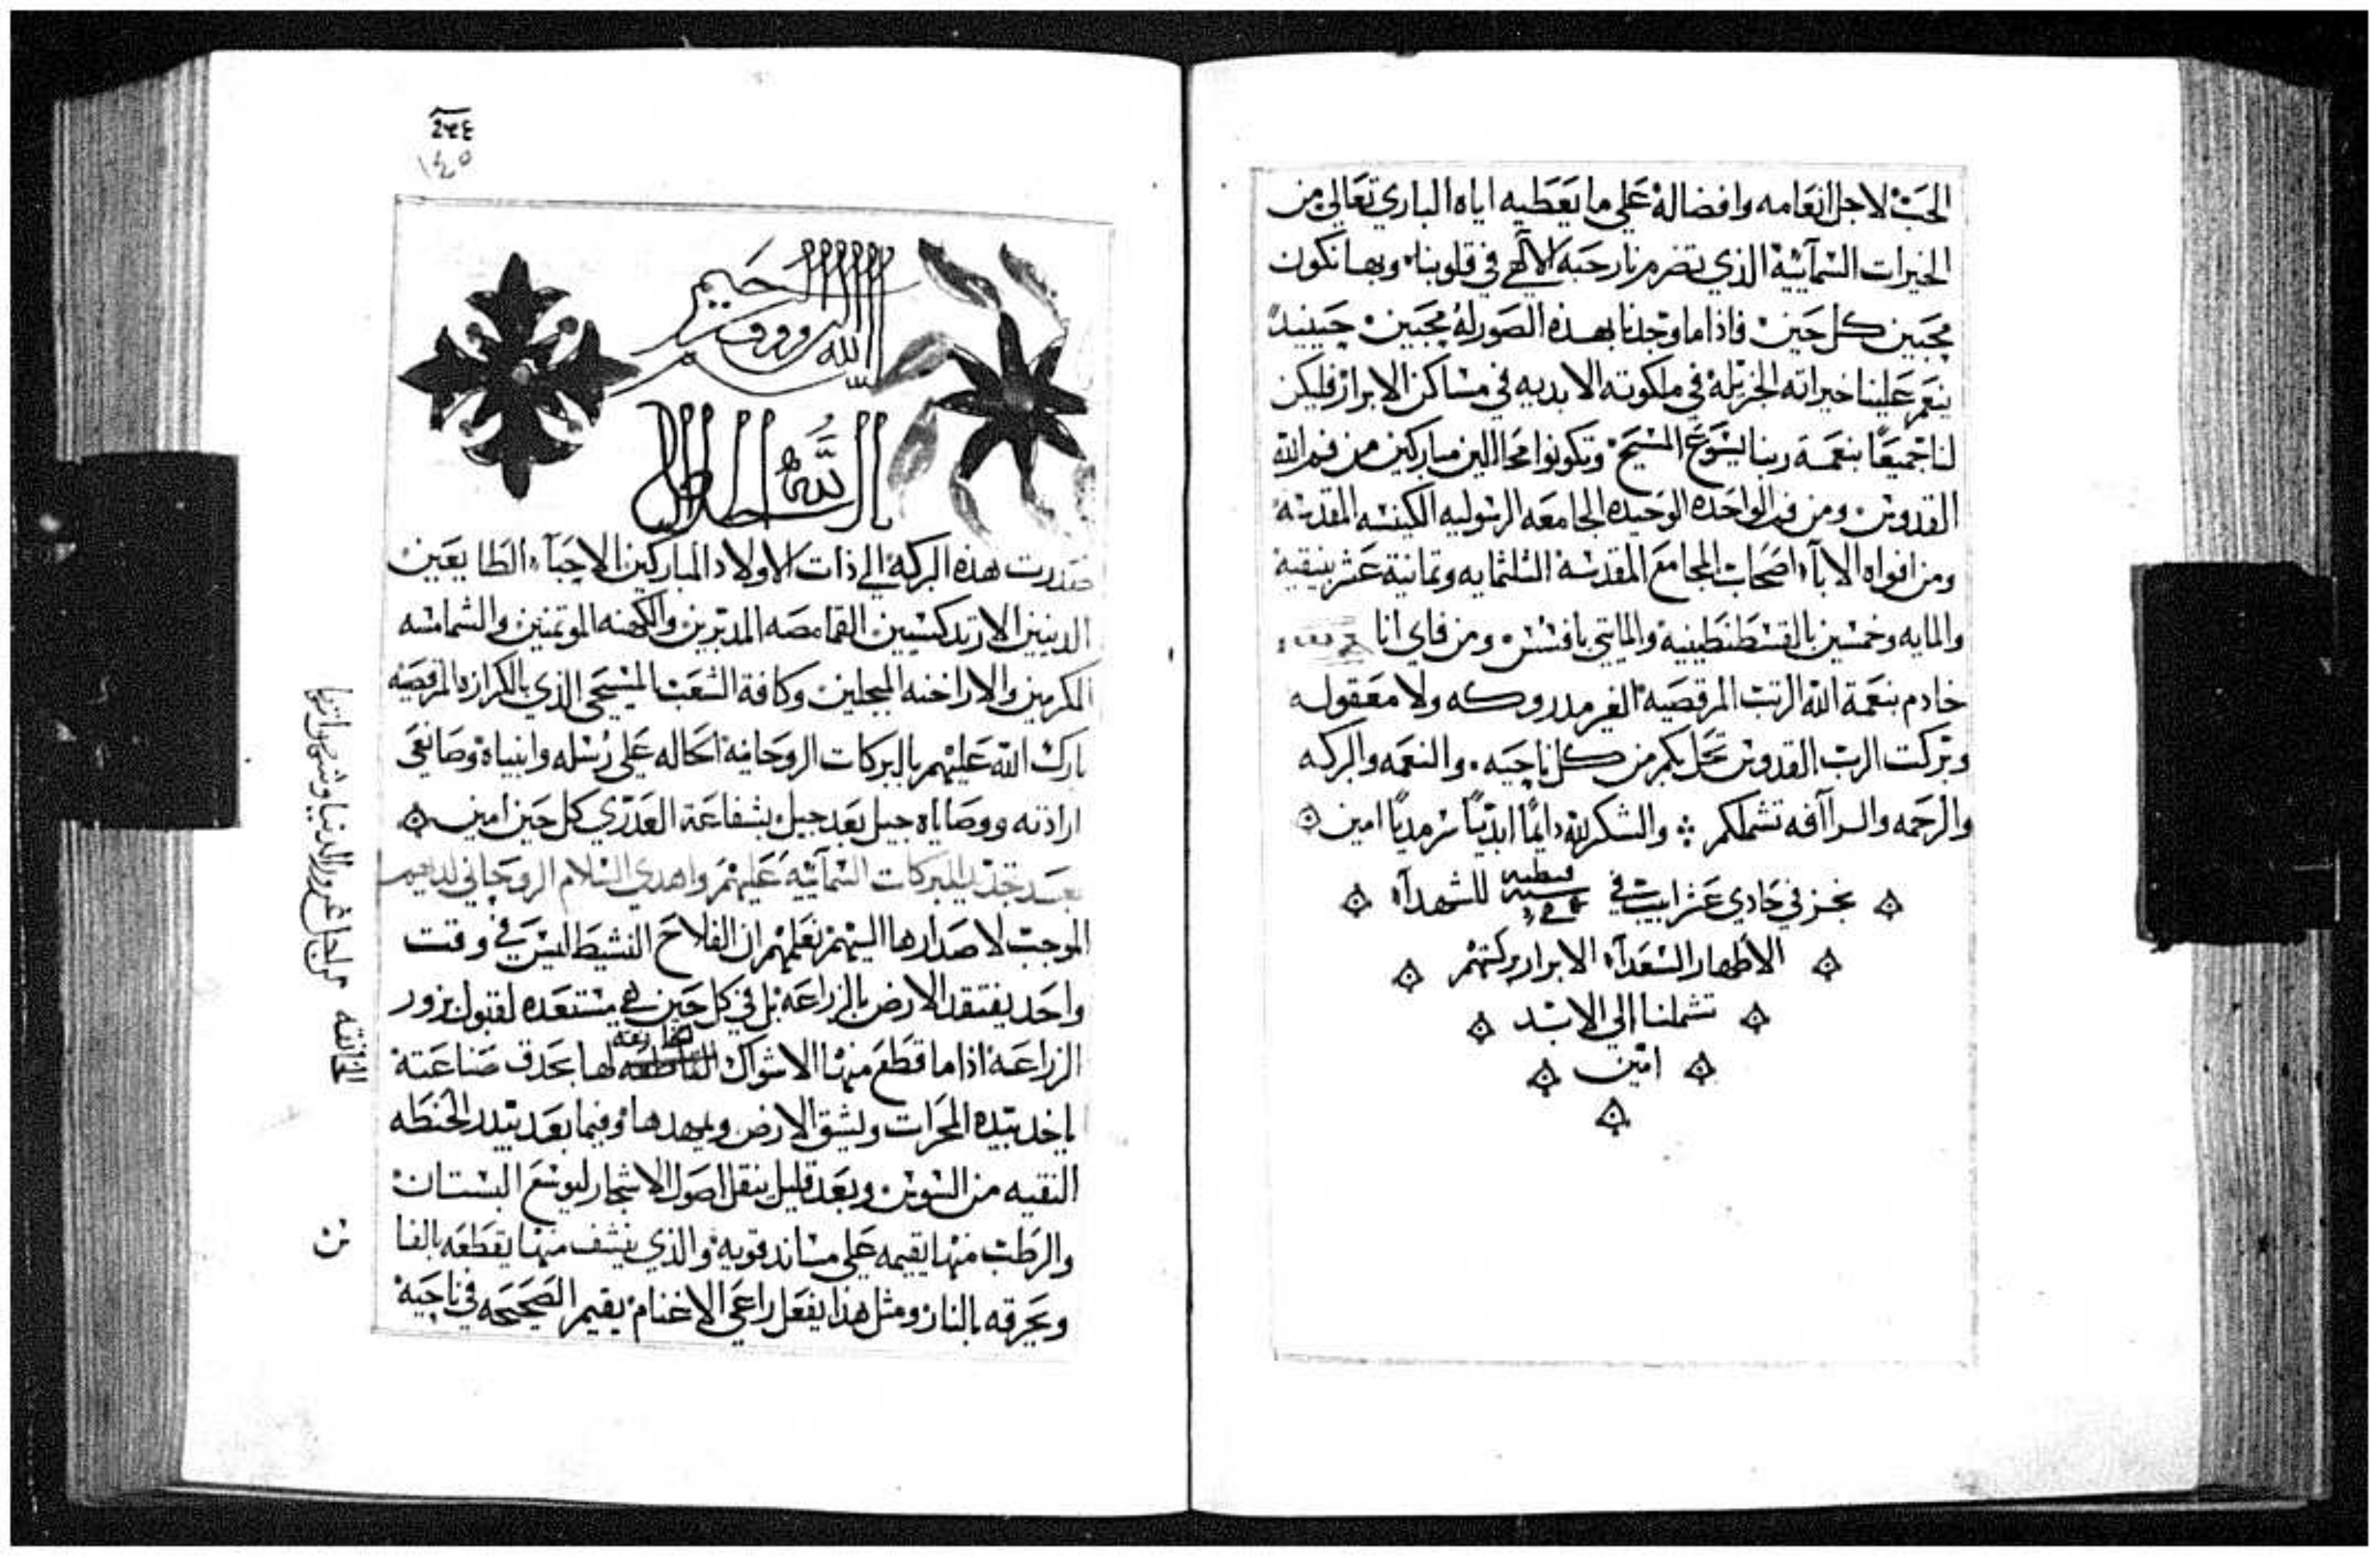 الحب لاجل انعامه وافضاله على ما يعطيه اياه الباري تعالى من
الخيرات السمآئية الذي تضرم نار حبه الالهي في قلوبنا وبها نكون
محبين كل حين فاذا ما وجدنا بهذه الصوره محبين حينيد
ينعم علينا خيراته الجزيله في ملكوته الابديه في مساكن الابرار فليكن
لنا جميعًا بنعمة ربنا يسوع المسيح وتكونوا محاللين مباركين من فم الله
القدوس ومن فم الواحده الوحيده الجامعه الرسوليه الكنيسه المقدسه
ومن افواه الابآء اصحاب المجامع المقدسه الثلثمايه وثمانية عشر بنيقية
والمايه وخمسين بالقسطنطينية والمايتي بافسس ومن فاي انا
خادم بنعمة الله الرتب المرقصيه الغير مدروكه ولا معقوله
وبركت الرب القدوس تحل بكم من كل ناحيه والنعمه والبركه
والرحمه والراآفه تشملكم والشكر لله دايمًا ابديًا سرمديًا امين
نجز في حادي عشر ابيب في سنة قبطيه للشهدآء
الأطهار السعدآء الابرار بركتهم
تشملنا الى الابد
امين
٢٤٤
١٤٥
بسم الله الرووف الرحيم
صدرت هذه البركة الى ذات الاولاد المباركين الاحبآء الطايعين
الدينين الارتدكسيين القمامصه المدبرين والكهنه الموتمنين والشمامسه
المكرمين والاراخنه المبجلين وكافة الشعب المسيحي الذي بالكرازه المرقصيه
بارك الله عليهم بالبركات الروحانية الحاله على رسله وانبياه وصانعى
ارادته ووصاياه جيل بعد جيل بشفاعة العدرى كل حين امين
بعد تجديد البركات السمآئية عليهم واهدي السلام الروحاني لديهم
الموجب لاصدارها اليهم نعلمهم ان الفلاح النشيط ليس في وقت
واحد يفتقد الارض بالزراعه بل في كل حين هي مستعده لقبول بزور
الزراعة اذا ما قطع منها الاشواك لها بحدق صناعته
ياخد بيده المحرات ويشق الارض ويمهدها وفيما بعد يبدر الحنطه
النقيه من السوس وبعد قليل ينقل اصول الاشجار ليوسع البستان
والرطب منها يقيمه على مساند قويه والذي ينشف منها يقطعه بالفا
ويحرقه بالنار ومثل هذا يفعل راعي الاغنام يقيم الصحيحه في ناحية